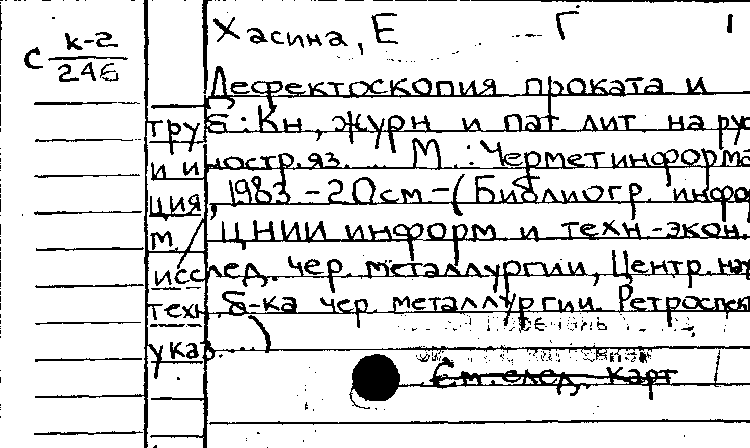 Хасина, Е Г
С к-2
246
Дефектоскопия проката и
труб: Кн, журн и пат. лит. на рус
и иностр. яз.... М.: Черметинформа
ция, 1983 - 20см - (Библиогр. инфор
м. / ЦНИИ информ и техн.-экон.
исслед. чер. металлургии, Центр. нау
техн. б-ка чер. металлургии. Ретроспек
указ....)
См. след. карт